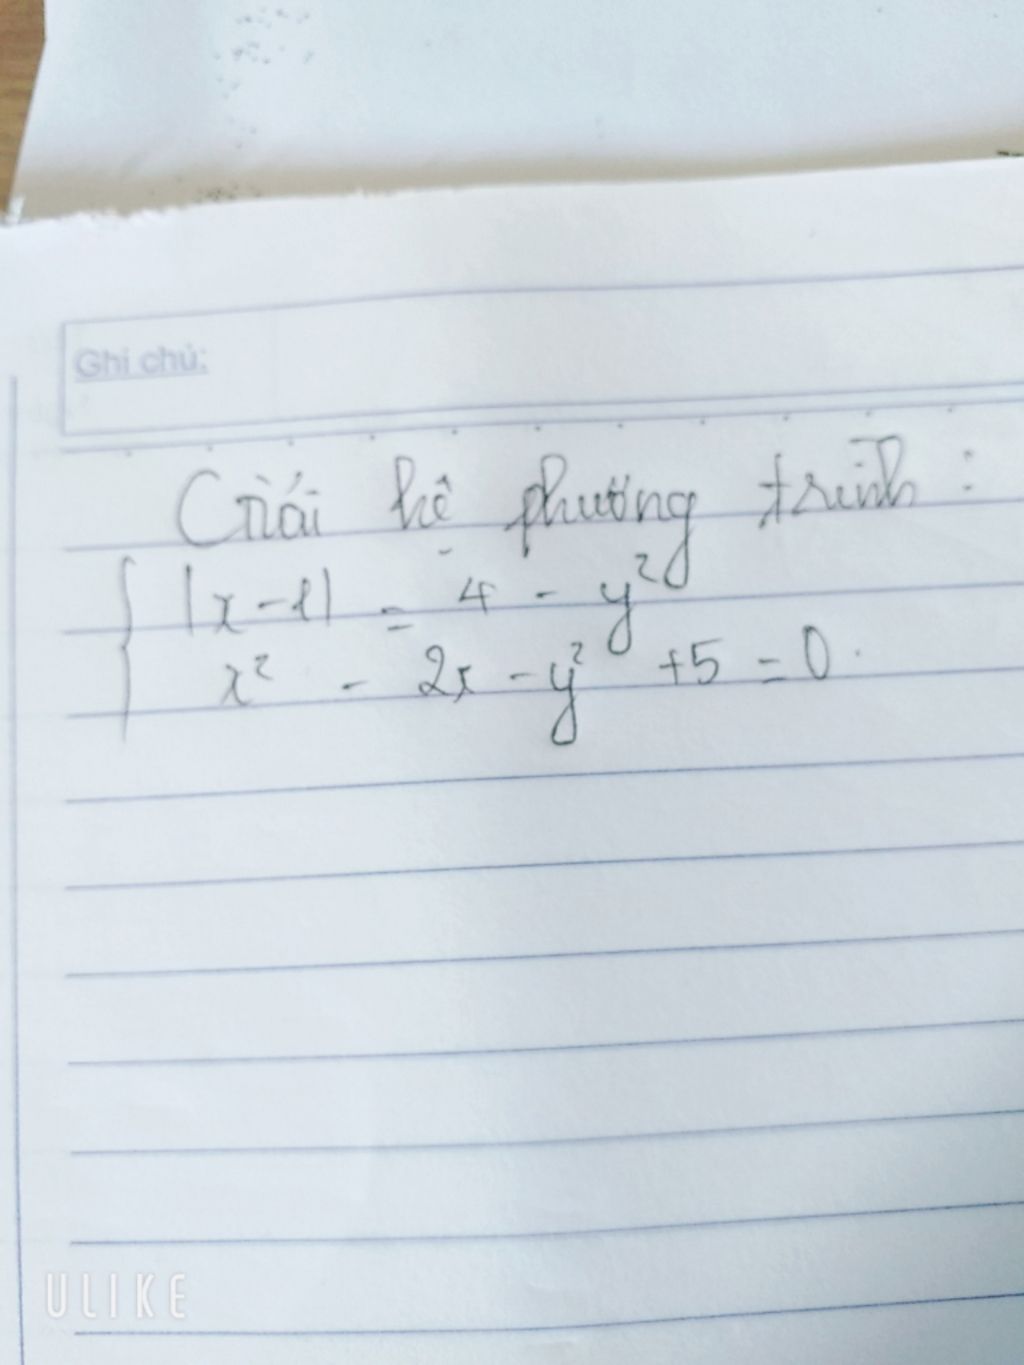 Ghi chú:
Giải hệ phương trình :
|x-1| = 4 - y²
x² - 2x - y² +5 = 0.
ULIKE